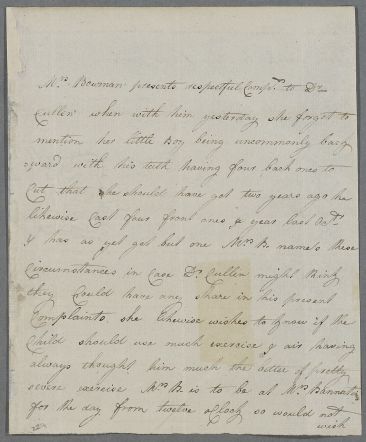 Mrs. Bowman presents respectful Compts. to Dr.
Cullen when with him yesterday she forgot to
mention her little Boy being uncommonly back
ward with his teeth having four back ones to
Cut that he should have got two years ago he
likewise Cast four from ones a year last Octr.
& has as yet got but one Mrs. B. name's these
Circumstances in Case Dr. Cullen might think
they Could have any share in his present
Complaints. she likewise wishes to know if the
Child should use much exercise & air having
always thought him much the better of pretty
severe exercise Mrs. B is to be at Mrs. Bannatine
for the day from twelve oClock so would not
wish